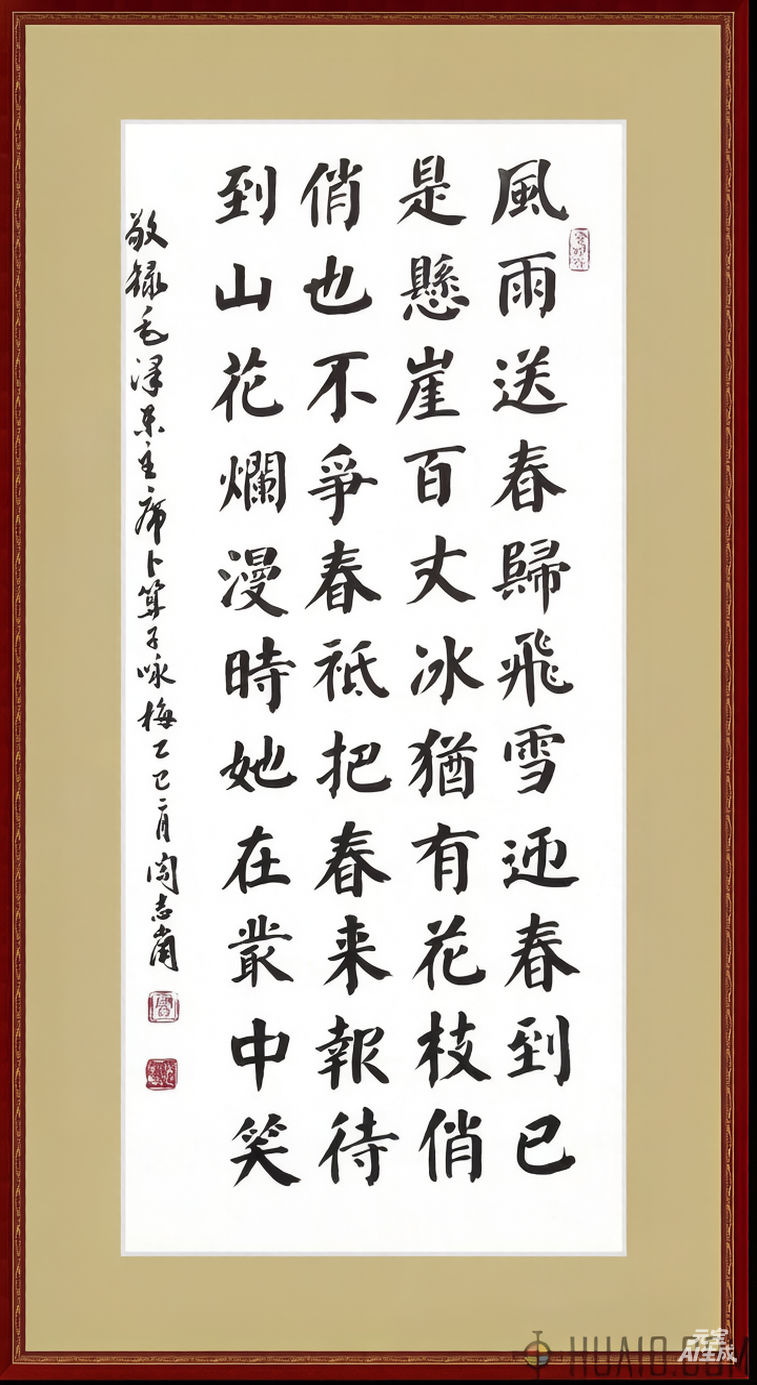 風雨送春歸飛雪迎春到已
是懸崖百丈冰猶有花枝俏
俏也不爭春祗把春来報待
到山花爛漫時她在叢中笑
敬録毛澤東主席卜算子咏梅乙巳二月闫志甫
HUA10.COM
元宝
AI生成